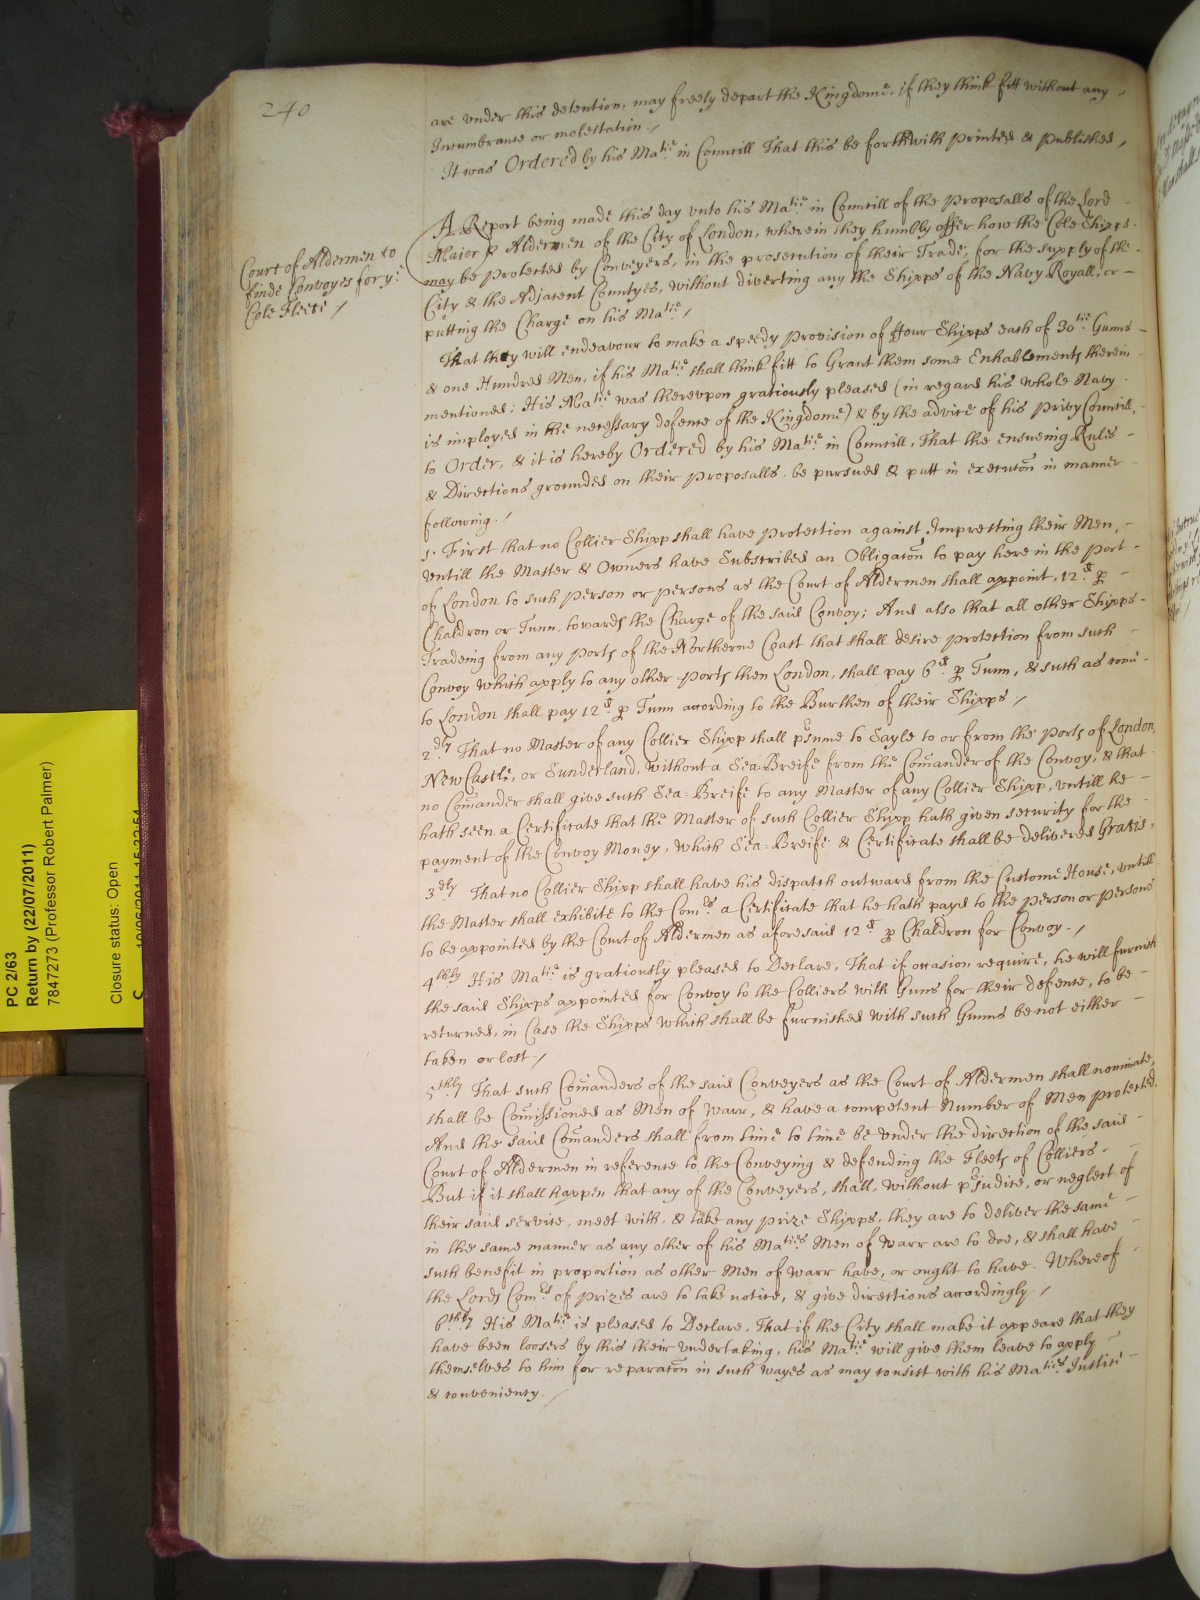 240
are vnder this detention, may freely depart the Kingdome, if they think fitt without any
Incumbrance or molestation./
It was Ordered by his Ma:tie in Councill That this be forthwith Printed & Published,
Court of Aldermen to
finde Convoyes for y:e
Cole Fleete /
A Report being made this day vnto his Ma:tie in Councill of the Proposalls of the Lord
Major & Aldermen of the City of London, wherein they humbly offer how the Cole Shipps
may be protected by Conveyers, in the prosecution of their Trade, for the supply of the
City & the Adjacent Countyes, without diverting any the Shipps of the Navy Royall, or
putting the Charge on his Ma:tie /
That they will endeavour to make a speedy Provision of ffour Shipps each of 30:tie Gunns
& one Hundred Men, if his Ma:tie shall think fitt to Grant them some Enhablements therein
mentioned: His Ma:tie was therevpon gratiously pleased (in regard his whole Navy
is imployed in the necessary defence of the Kingdome) & by the advice of his Privy Councill,
to Order, & it is hereby Ordered by his Ma:tie in Councill, That the ensueing Rules
& Directions grounded on their Proposalls be pursued & putt in execution in manner
following./
1. First that no Collier Shipp shall have Protection against Impresting their Men,
vntill the Master & Owners have Subscribed an Obligaton to pay here in the Port
of London to such person or persons as the Court of Aldermen shall appoint, 12:d p
Chaldron or Tunn, towards the Charge of the said Convoy; And also that all other Shipps
Tradeing from any Ports of the Northerne Coast that shall desire protection from such
Convoy which apply to any other Ports then London, shall pay 6:d p Tunn, & such as come
to London shall pay 12:d p Tunn according to the Burthen of their Shipps /
2:dly That no Master of any Collier Shipp shall p:sume to Sayle to or from the Ports of London,
New Castle, or Sunderland, without a Sea=Breife from the Comander of the Convoy, & that
no Comander shall give such Sea=Breife to any Master of any Collier Shipp, vntill he
hath seen a Certificate that the Master of such Collier Shipp hath given security for the
payment of the Convoy Money, which Sea=Breife & Certificate shall be delivered Gratis,
3:dly That no Collier Shipp shall have his dispatch outward from the Custome House, vntill
the Master shall exhibite to the Com:rs a Certificate that he hath payd to the person or persons
to be appointed by the Court of Aldermen as aforesaid 12:d p Chaldron for Convoy./
4:thly His Ma:tie is gratiously pleased to Declare, That if occasion require, he will furnish
the said Shipps appointed for Convoy to the Colliers with Guns for their defence, to be
returned, in Case the Shipps which shall be furnished with such Gunns be not either
taken or lost./
5:thly That such Comanders of the said Conveyers as the Court of Aldermen shall nominate,
shall be Comissioned as Men of Warr, & have a competent Number of Men protected.
And the said Comanders shall from time to time be vnder the direction of the said
Court of Aldermen in reference to the Conveying & defending the Fleets of Colliers.
But if it shall happen that any of the Conveyers, shall, without p:judice, or neglect of
their said service, meet with, & take any prize Shipps, they are to deliver the same
in the same manner as any other of his Ma:ties Men of Warr are to doe, & shall have
such benefit in proportion as other Men of warr have, or ought to have. Whereof
the Lords Com:rs of Prizes are to take notice, & give directions accordingly./
6:thly His Ma:tie is pleased to Declare, That if the City shall make it appeare that they
have been loosers by this their vndertaking, his Ma:tie will give them leave to apply
themselves to him for reparaton in such wayes as may consist with his Ma:ties Justice
& conveniency./
PC 2/63
Return by (22/07/2011)
7847273 (Professor Robert Palmer)
Closure status: Open